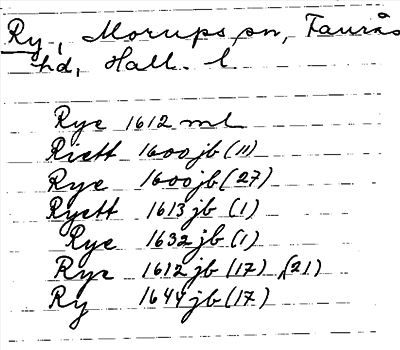 Ry, Morups sn, Faurås
hd, Hall. l
Rye 1612 ml
Riett 1600 jb (11)
Rye 1600 jb (27)
Ryett 1613 jb (1)
Rye 1632 jb (1)
Rye 1612 jb (17) (21)
Ry 1644 jb (17)